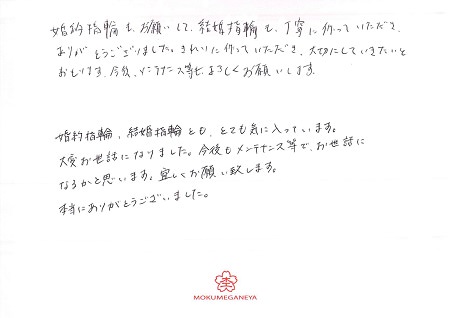 婚約指輪も、お願いして、結婚指輪も、丁寧に作っていただき、
ありがとうございました。きれいに作っていただき、大切にしていきたいと
おもいます。今後、メンテナンス等も、よろしくお願いします。
婚約指輪、結婚指輪とも、とても気に入っています。
大変お世話になりました。今後もメンテナンス等で、お世話に
なるかと思います。宜しくお願い致します。
本当にありがとうございました。
MOKUMEGANEYA